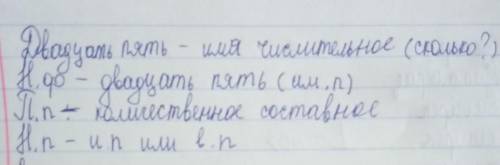 Двадцать пять – имя числительное (сколько?)
Н.ф – двадцать пять (им.п)
П.п – количественное составное
Н.п – и.п или в.п